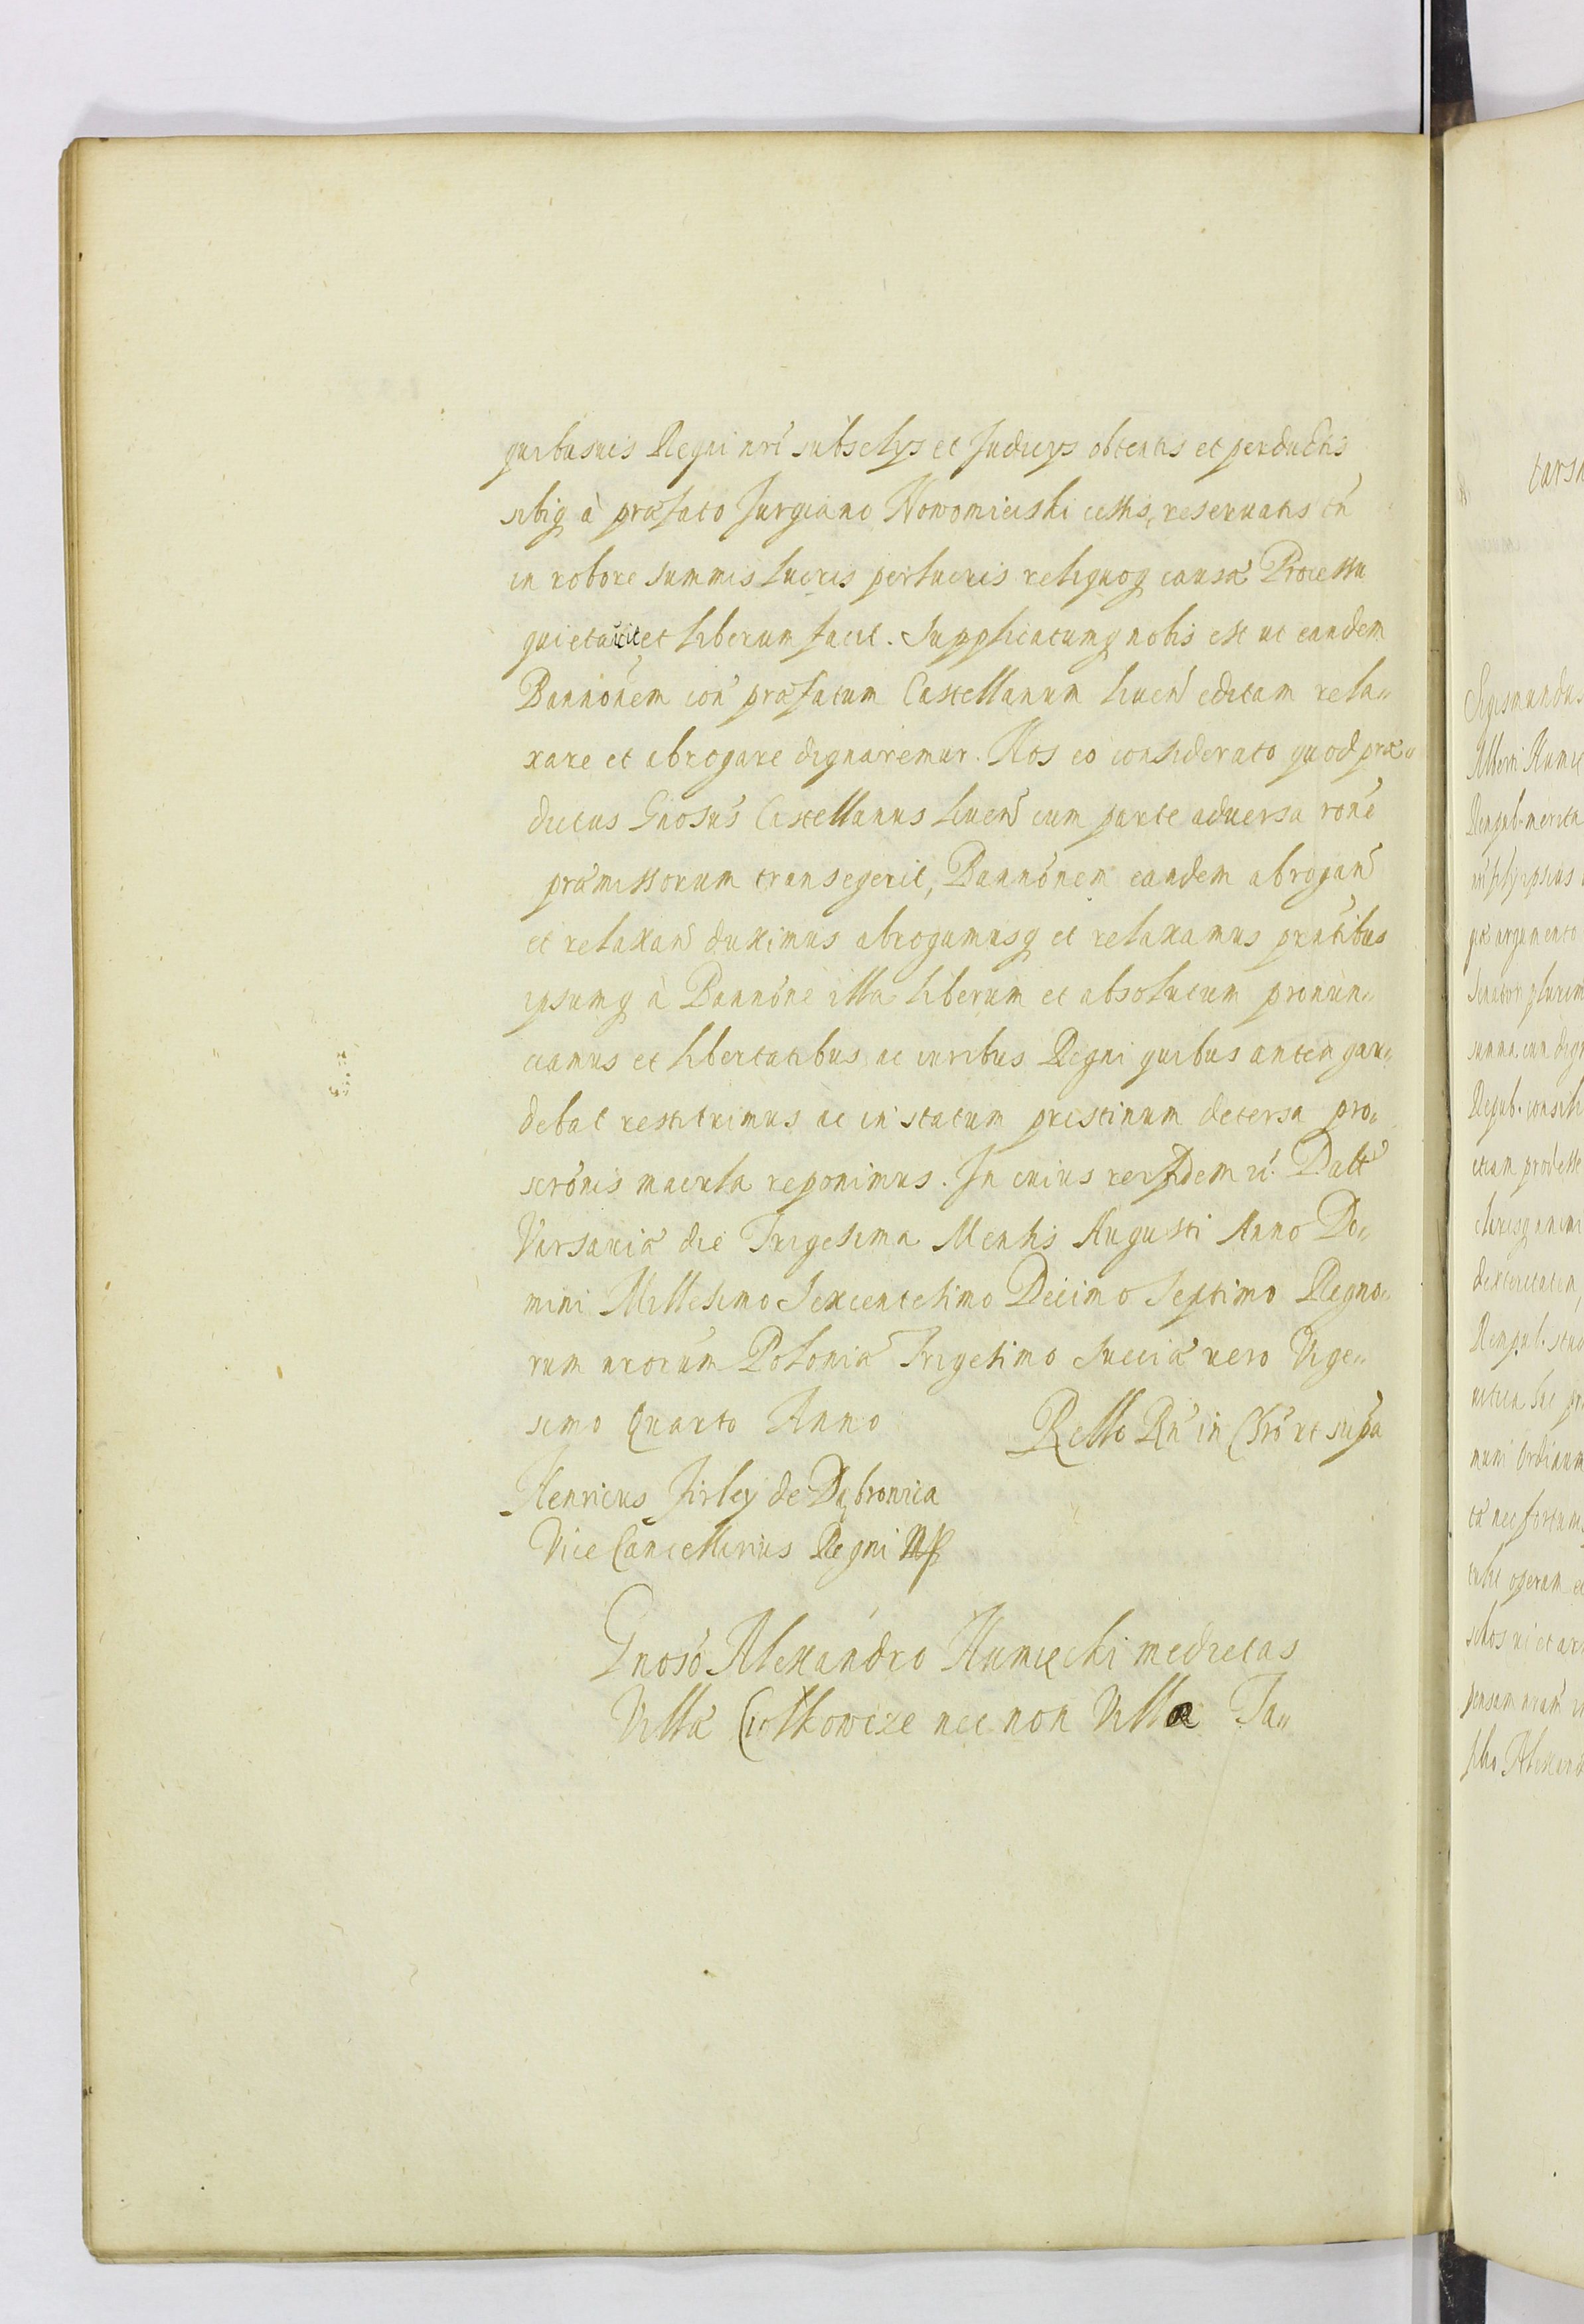 quibusuis Regni nri subselys et Judicys obtentis et perductis
sibiq à præfato Jurgiano Nowomieiski cessis, reseruatis tn
in robore summis lucris perlucris reliquoq causæ Processu
quietauit et liberum facit. Supplicatumq nobis est ut eandem
Bannionem con præfatum Castellanum liuen editam rela„
xare et abrogare dignaremur. Nos eo considerato quod præ„
dictus Gnosus Castellanus liuen cum parte aduersa rone
præmissorum transegerit, Bannionem eandem abrogan
et relaxan duximus abrogamusq et relaxamus pntibus
ipsumq à Bannione illa liberum et absolutum pronun„
ciamus et libertatibus ac iuribus Regni quibus antea gau„
debat restituimus ac in statum pristinum detersa pro„
scronis macula reponimus. In cuius rei fidem etc. Datt
Varsauiæ die Trigesima Mensis Augusti Anno Do„
mini Millesimo Sexcentesimo Decimo Septimo Regno„
rum nrorum Poloniæ Trigesimo Sueciæ uero Vige„
simo Quarto Anno Rello Rn in Chro ut supa
Henricus Firley de Dąbrouica
Vice Cancellarius Regni Mp
Gnoso Alexandro Humięcki medietas
Villæ Ciołkowcze nec non Villæ Ta„
tarsn
Sigismundus
Alberti Humię
Reipub. merita
Senatori plurim
summa cum dign
Repub. consili
etiam prodesse
dexteritatem,
muni Ordinum
tulit operam et
filio Alexand